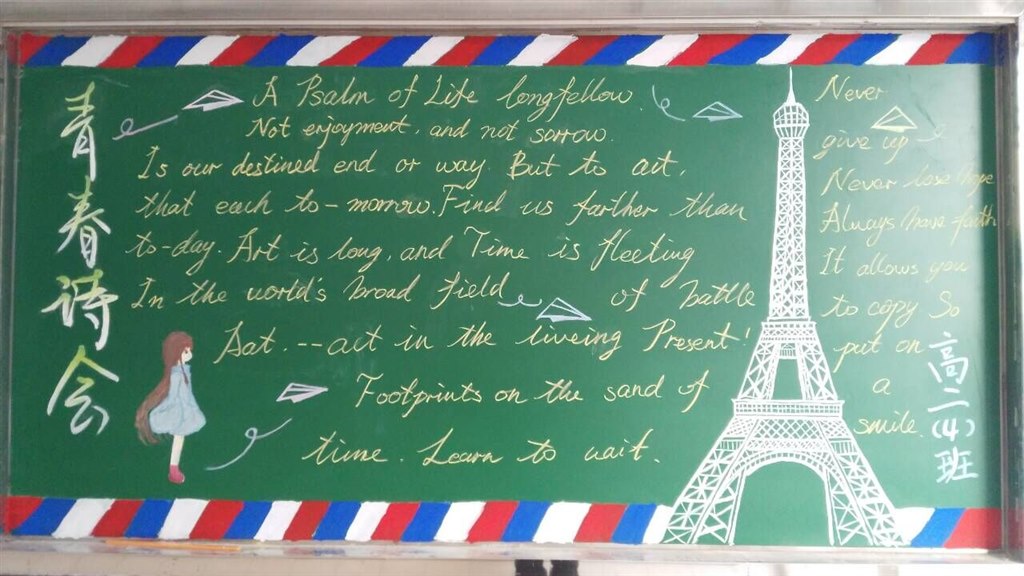 青春诗会
A Psalm of Life longfellow.
Not enjoyment, and not sorrow.
Is our destined end or way. But to act,
that each to-morrow. Find us farther than
to-day. Art is long, and Time is fleeting
In the world's broad field of battle
Aat. --act in the liveing Present!
Footprints on the sand of
time. Learn to wait.
Never
give up
Never lose hope
Always have faith
It allows you
to copy So
put on
a
smile.
高二(4)班